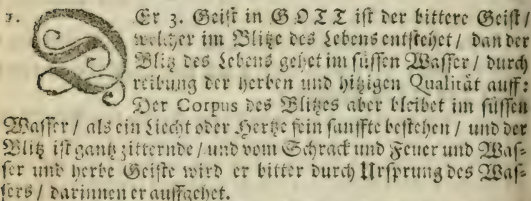 1. DEr 3. Geist in GOTT ist der bittere Geist /
welcher im Blitze des Lebens entstehet / dan der
Blitz des Lebens gehet im süssen Wasser / durch
reibung der herben und hitzigen Qualität auff:
Der Corpus des Blitzes aber bleibet im süssen
Wasser / als ein Liecht oder Hertze fein sanffte bestehen / und der
Blitz ist gantz zitternde / und vom Schrack und Feuer und Was-
ser und herbe Geiste wird er bitter durch Ursprung des Was-
sers / darinnen er auffgehet.